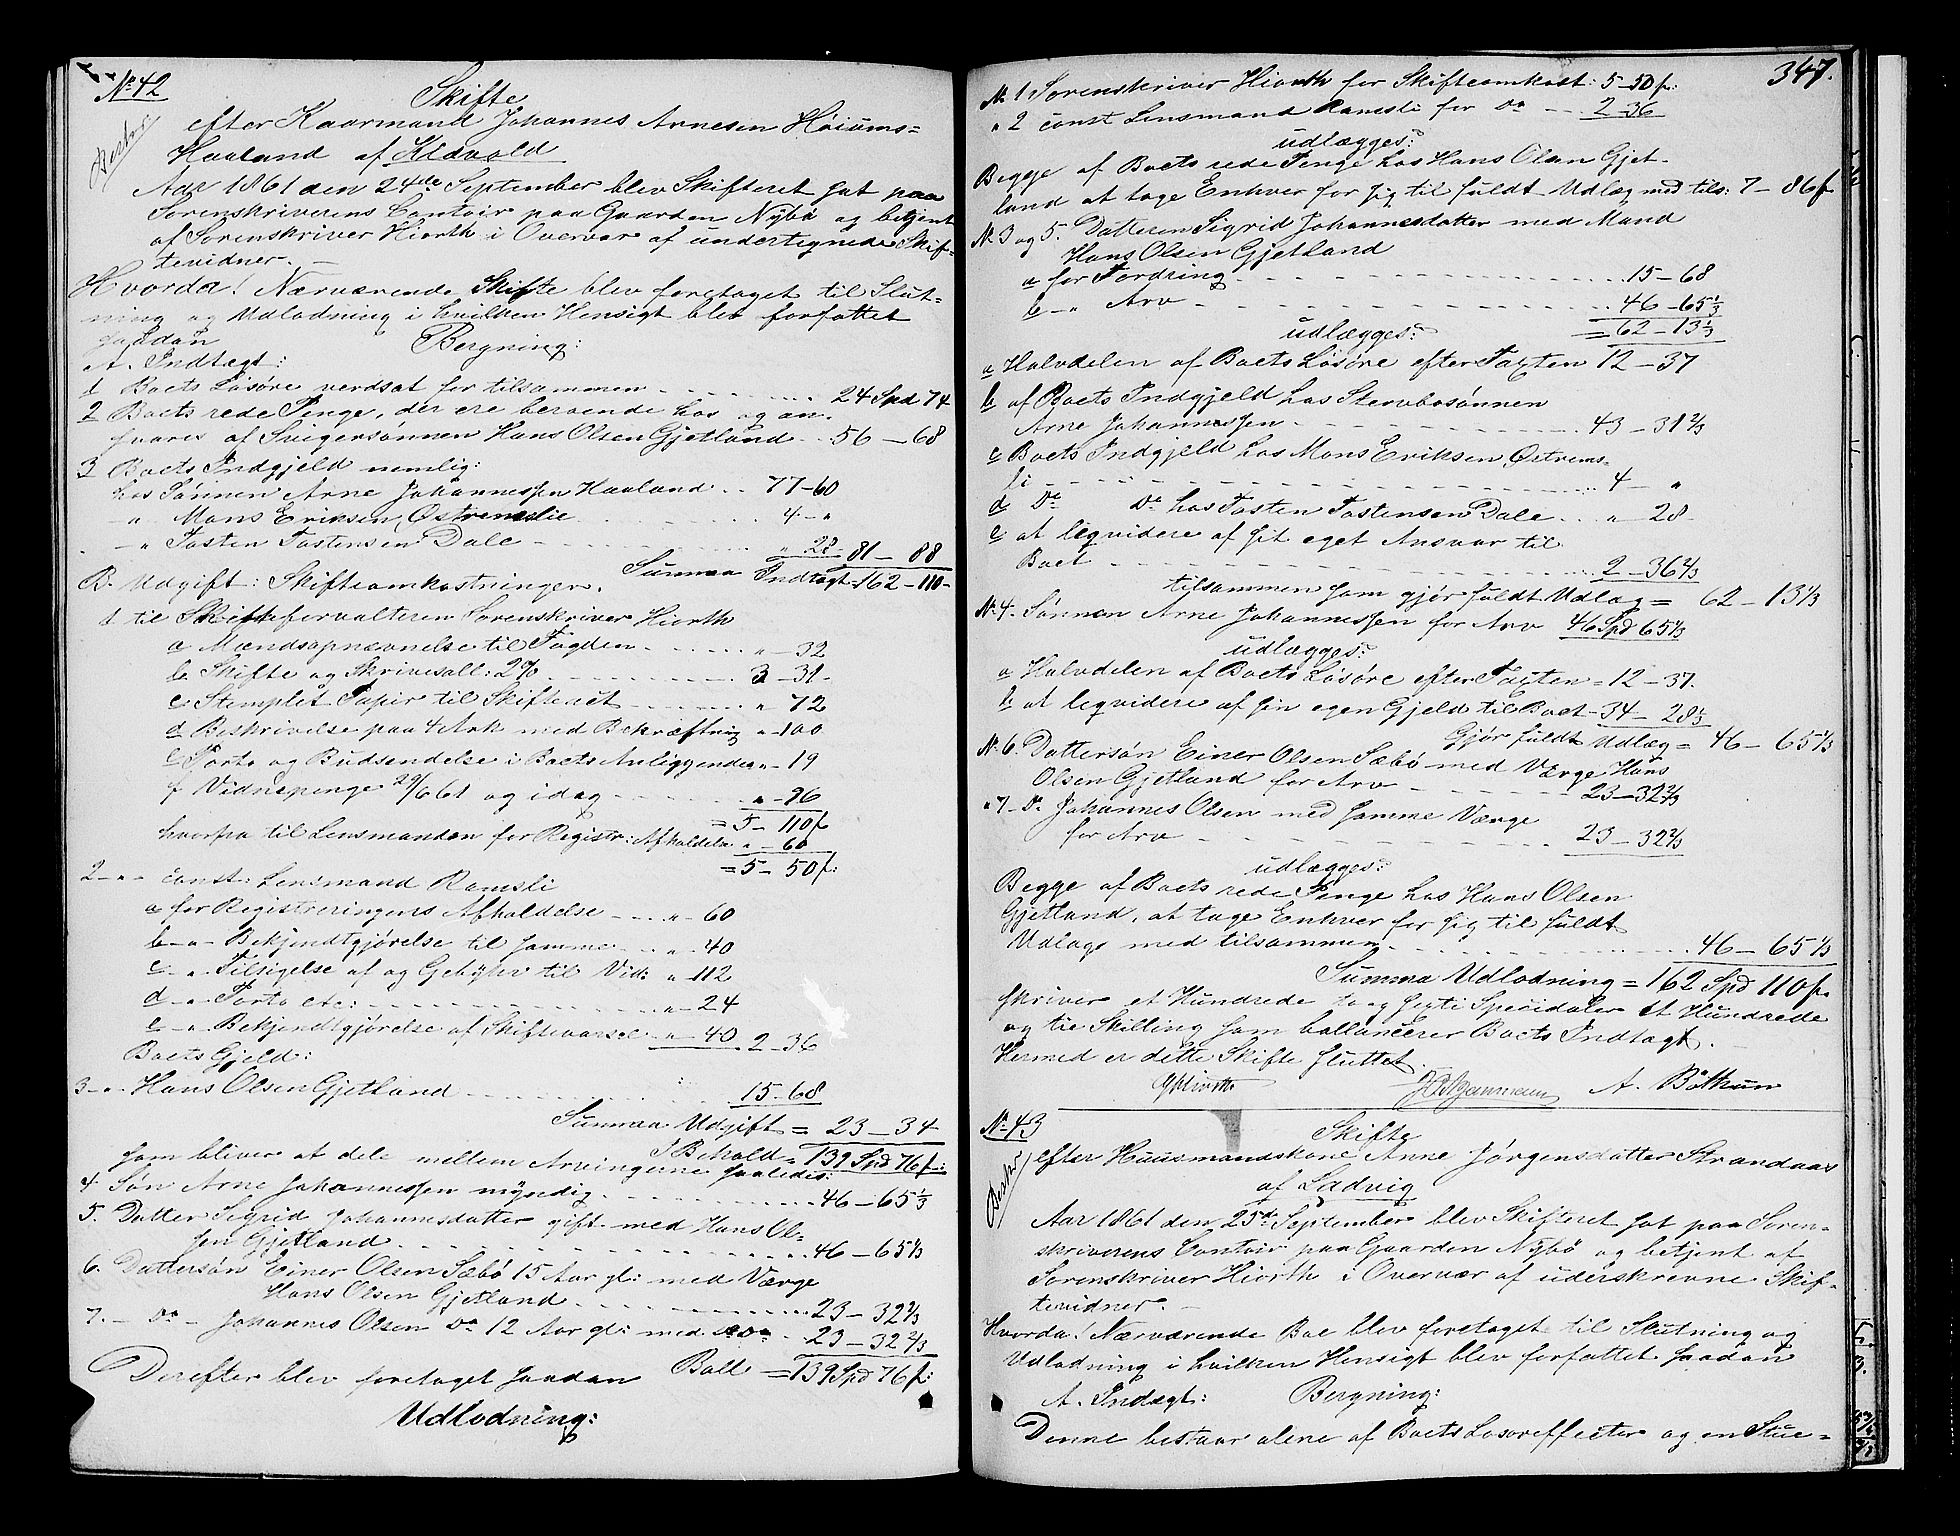 No 42
Skifte
efter Kaarmand Johannes Arnesen Høiums=
Haaland af Kldvold
Aar 1861 den 24de September blev Skifteret sat paa
Sorenskriverens Contoir paa Gaarden Nybø og betjent
af Sorenskriver Hiorth i Overvær af undertegnede Skif-
tevidner. —
Hvorda! Nærværende Skifte blev foretaget til Slut-
ning og Udlodning i hvilken Hensigt blev forfattet
saadan
Bergning:
A. Indtægt:
1 Boets Løsøre verdsat for tilsammen 24 Spd 74
2 Boets rede Penge, der ere beroende hos og an-
svares af Svigersønnen Hans Olsen Gjetland 56 - 68
3 Boets Indgjeld nemlig:
hos Sønnen Arne Johannessen Haaland 77-60
-„ Mons Eriksen Østremslie 4-„
-„ Tosten Tostensen Dale „ 28 81 - 88
Summa Indtægt=162-110-
B. Udgift: Skifteomkostninger.
1 til Skifteforvalteren Sorenskriver Hiorth
a Mændsopnævnelse til Fogden „-32
b Skifte og Skrivesall: 2% 3-31-
c Stemplet Papir til Skifteret „ 72
d Beskrivelse paa 4 Ark med Bekræftning „-100
e Porto og Budsendelse i Boets Anliggender „-19
f Vidnepenge 29/6 61 og idag „-96
=5-110 s
hvorfra til Lensmanden for Registr: Afholdelse „-60
=5-50 s:
2-„- const: Lensmand Ramsli
a for Registreringens Afholdelse „-60
b-„- Bekjendtgjørelse til samme „-40
c-„- Tilsigelse af og Gebyhr til Vid: „-112
d-„- Porto etc: „-24
e-„- Bekjendtgjørelse af Skiftevarsel „-40 2-36
Boets Gjeld:
3-„. Hans Olsen Gjetland 15-68
Summa Udgift = 23-34
I Behold = 139 Spd 76 s:
som bliver at dele mellem Arvingerne saaledes:
4. Søn Arne Johannessen myndig 46-65 1/3
5. Datter Sigrid Johannesdatter gift med Hans Ol-
sen Gjetland 46-65 1/3
6. Dattersøn Einer Olsen Sæbø 15 Aar gl: med Værge
Hans Olsen Gjetland 23-32 2/3
7. - Do - Johannes Olsen Do 12 Aar gl: med Do 23-32 2/3
Ball =139 Spd 76 s:
Derefter blev foretaget saadan
Udlodning:
347.
No 1 Sorenskriver Hiorth for Skifteomkost: 5-50 s:
„ 2 const Lensmand Ramsli for Do 2-36
udlægges:
Begge af Boets rede Penge hos Hans Olsen Gjet-
land at tage Enhver for sig til fuldt Udlæg med tils: 7-86 s
No 3 og 5. Datteren Sigrid Johannesdatter med Mand
Hans Olsen Gjetland
a for Fordring 15-68
b-„ Arv 46-65 1/3
=62-13 1/3
udlægges:
a Halvdelen af Boets Løsøre efter Taxten 12-37
b af Boets Indgjeld hos Stervbosønnen
Arne Johannessen 43-31 2/3
c Boets Indgjeld hos Mons Eriksen Østrems-
li 4-„
d Do Do hos Tosten Tostensen Dale „-28
e at liqvidere af sit eget Ansvar til
Boet 2-36 2/3
tilsammen som gjør fuldt Udlæg = 62-13 1/3
No 4. Sønnen Arne Johannessen for Arv 46 Spd 65 1/3
udlægges:
a Halvdelen af Boets Løsøre efter Taxten=12-37.
b at liqvidere af sin egen Gjeld til Boet-34-28 1/3
Gjør fuldt Udlæg= 46-65 1/3
No 6. Dattersøn Einer Olsen Sæbø med Værge Hans
Olsen Gjetland for Arv 23-32 2/3
„ 7 - Do Johannes Olsen med samme Værge
for Arv 23-32 2/3
udlægges:
Begge af Boets rede Penge hos Hans Olsen
Gjetland, at tage Enhver for sig til fuldt
Udlæg med tilsammen 46-65 1/3
Summa Udlodning = 162 Spd 110 s.
skriver et Hundrede to og sexti Speciedaler et Hundrede
og tie Skilling som ballancerer Boets Indtægt.
Hermed er dette Skifte sluttet.
GHiorth A. Bøthun
No 43
Skifte
efter Huusmandskone Anne Jørgensdatter Strandaas
af Ladvig
Aar 1861 den 25de September blev Skifteret sat paa Soren-
skriverens Contoir paa Gaarden Nybø og betjent af
Sorenskriver Hiorth i Overvær af uderskrevne Skif-
tevidner. -
Hvorda! Nærværende Boe blev foretaget til Slutning og
Udlodning i hvilken Hensigt blev forfattet saadan
A. Indtægt: Bergning:
Denne bestaar alene af Boets Løsøreffecter og en Stue-